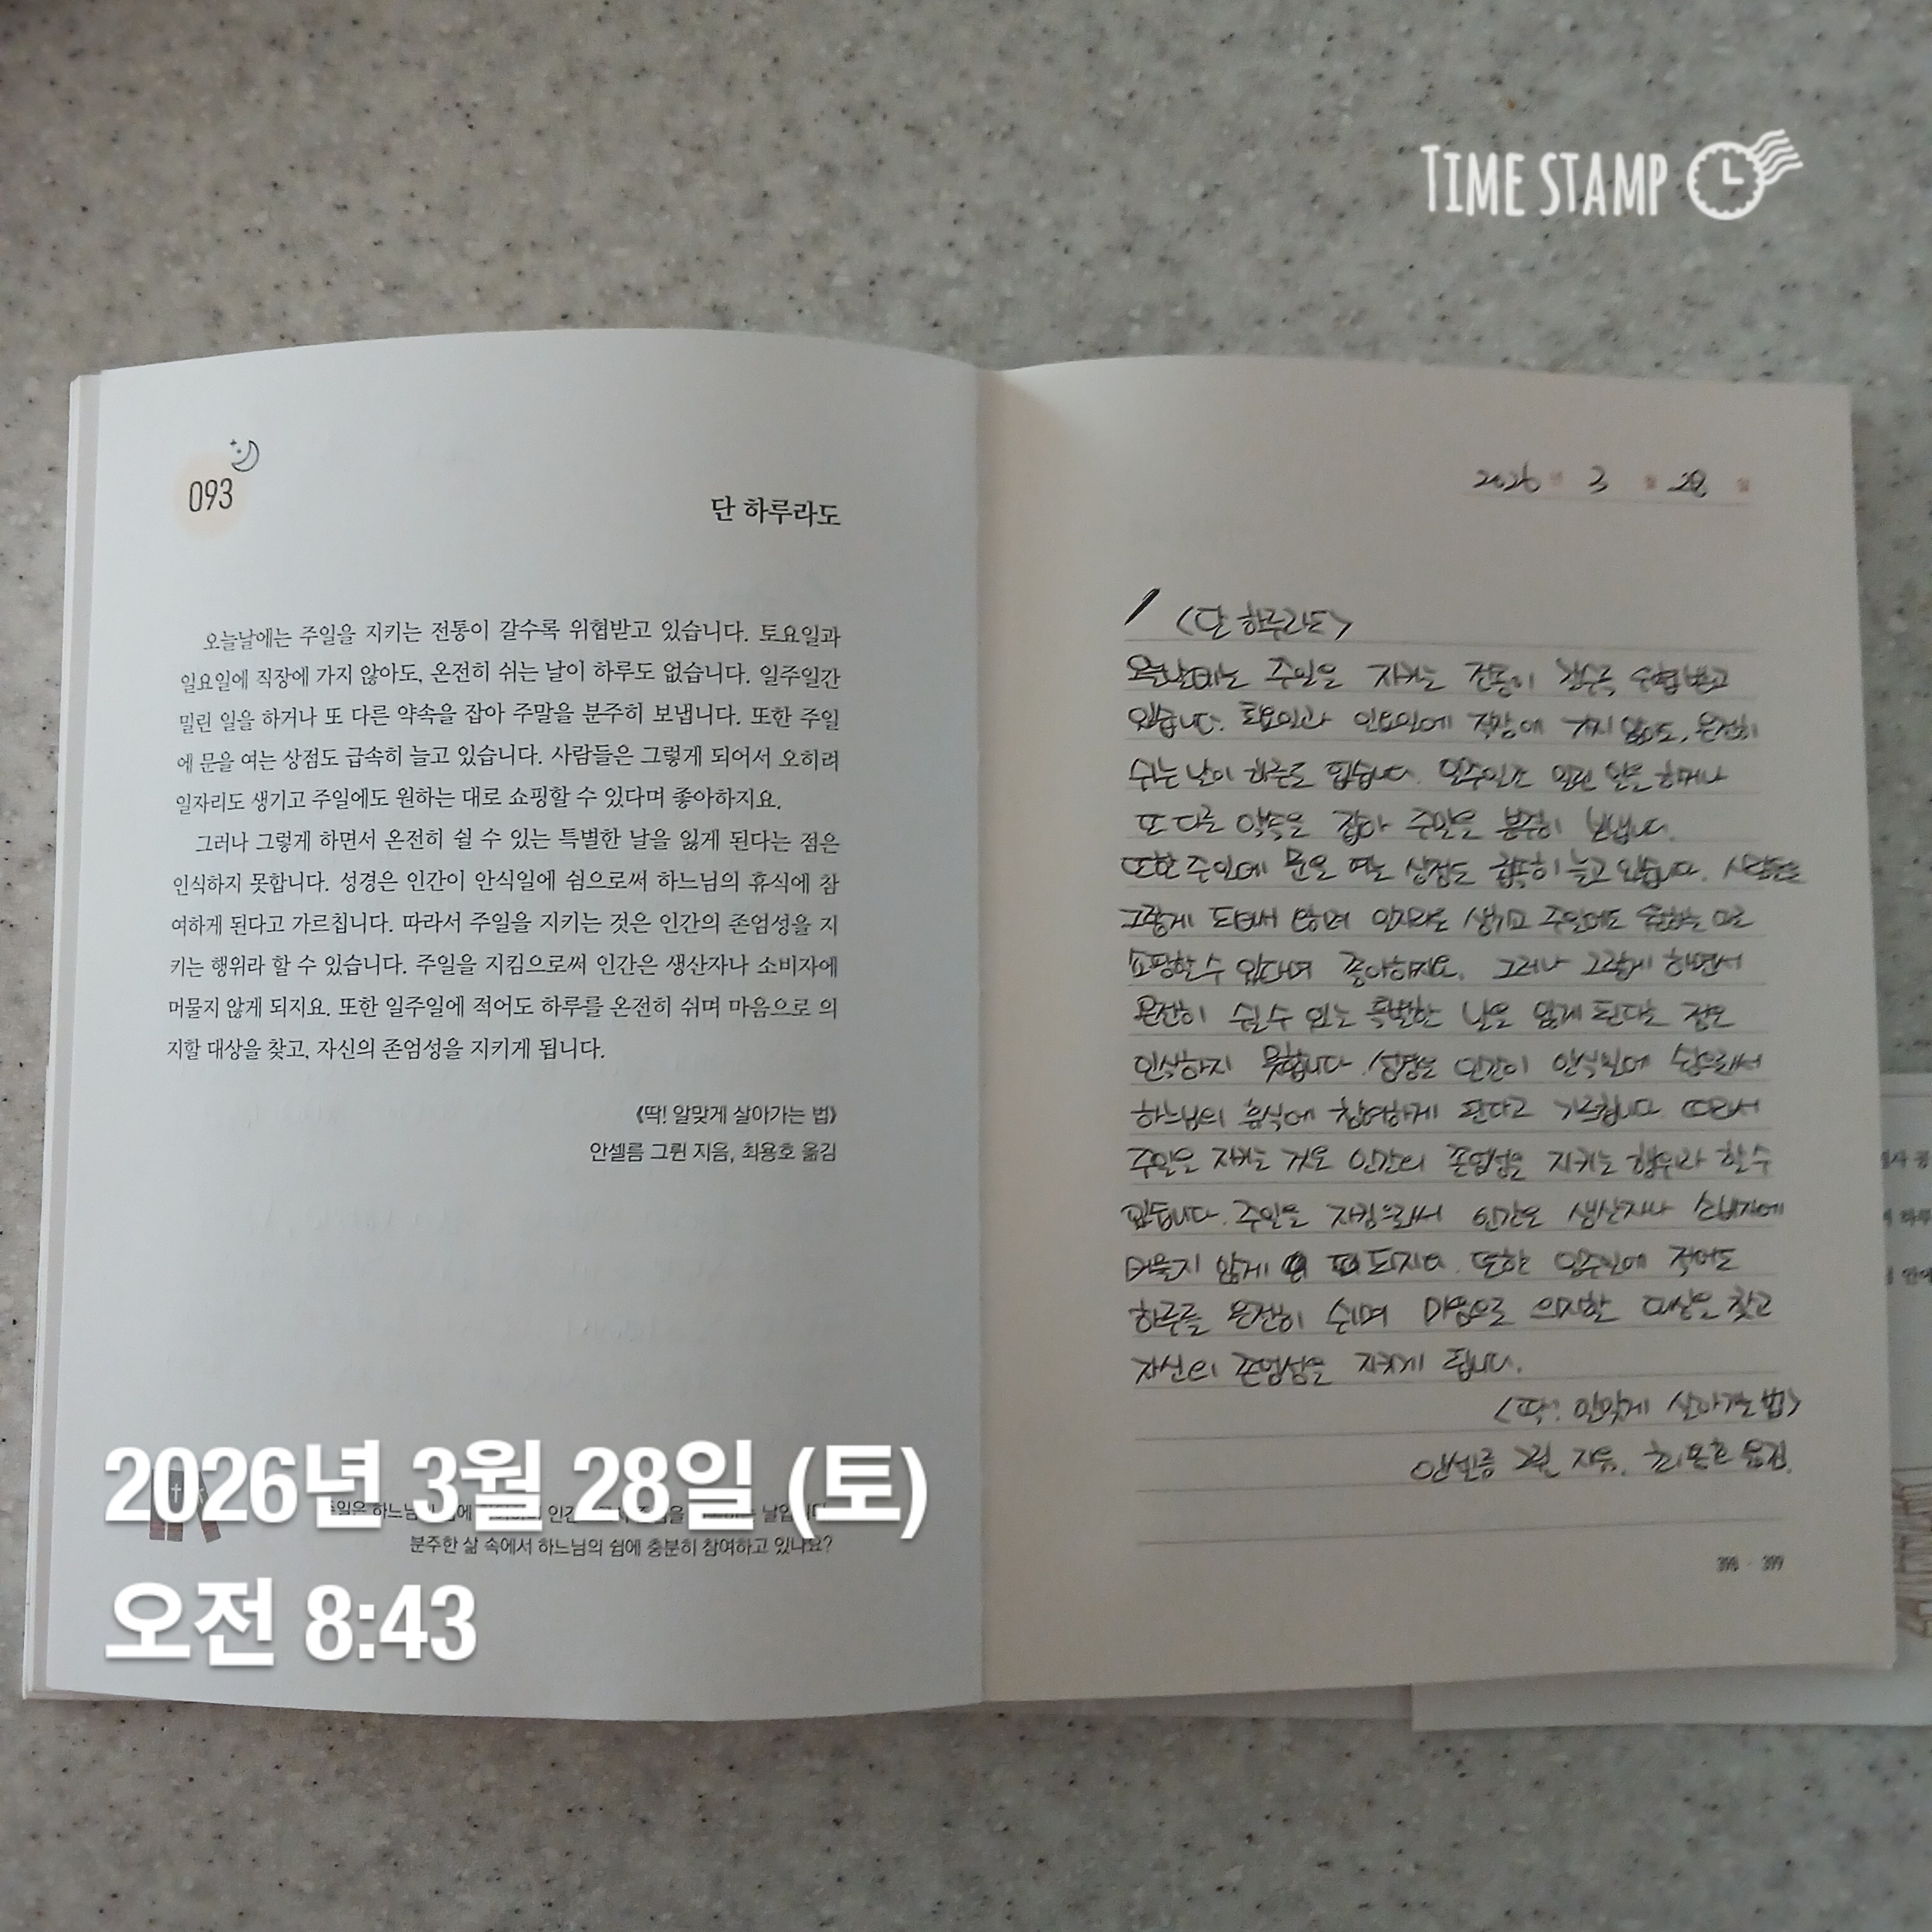 TIME STAMP
093
단 하루라도
오늘날에는 주일을 지키는 전통이 갈수록 위협받고 있습니다. 토요일과
일요일에 직장에 가지 않아도, 온전히 쉬는 날이 하루도 없습니다. 일주일간
밀린 일을 하거나 또 다른 약속을 잡아 주말을 분주히 보냅니다. 또한 주일
에 문을 여는 상점도 급속히 늘고 있습니다. 사람들은 그렇게 되어서 오히려
일자리도 생기고 주일에도 원하는 대로 쇼핑할 수 있다며 좋아하지요.
그러나 그렇게 하면서 온전히 쉴 수 있는 특별한 날을 잃게 된다는 점은
인식하지 못합니다. 성경은 인간이 안식일에 쉼으로써 하느님의 휴식에 참
여하게 된다고 가르칩니다. 따라서 주일을 지키는 것은 인간의 존엄성을 지
키는 행위라 할 수 있습니다. 주일을 지킴으로써 인간은 생산자나 소비자에
머물지 않게 되지요. 또한 일주일에 적어도 하루를 온전히 쉬며 마음으로 의
지할 대상을 찾고, 자신의 존엄성을 지키게 됩니다.
《딱! 알맞게 살아가는 법》
안셀름 그륀 지음, 최용호 옮김
주일은 하느님의 인간
분주한 삶 속에서 하느님의 쉼에 충분히 참여하고 있나요?
2026년 3월 28일 (토)
오전 8:43
2026년 3월 28일
<단 하루라도>
오늘날에는 주일을 지키는 전통이 갈수록 위협받고
있습니다. 토요일과 일요일에 직장에 가지 않아도, 온전히
쉬는 날이 하루도 없습니다. 일주일간 밀린 일을 하거나
또 다른 약속을 잡아 주말을 분주히 보냅니다.
또한 주일에 문을 여는 상점도 급속히 늘고 있습니다. 사람들은
그렇게 되어서 일자리도 생기고 주일에도 원하는 대로
쇼핑할 수 있다며 좋아하지요. 그러나 그렇게 하면서
온전히 쉴 수 있는 특별한 날을 잃게 된다는 점은
인식하지 못합니다. 성경은 인간이 안식일에 쉼으로써
하느님의 휴식에 참여하게 된다고 가르칩니다. 따라서
주일을 지키는 것은 인간의 존엄성을 지키는 행위라 할 수
있습니다. 주일을 지킴으로써 인간은 생산자나 소비자에
머물지 않게 되지요. 또한 일주일에 적어도
하루를 온전히 쉬며 마음으로 의지할 대상을 찾고
자신의 존엄성을 지키게 됩니다.
<딱! 알맞게 살아가는 법>
안셀름 그륀 지음, 최용호 옮김.
398 · 399